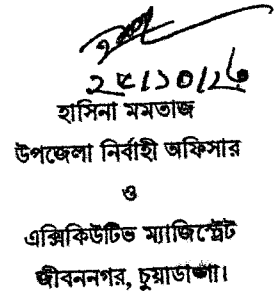 হাসিনা মমতাজ
উপজেলা নির্বাহী অফিসার
ও
এক্সিকিউটিভ ম্যাজিস্ট্রেট
জীবননগর, চুয়াডাঙ্গা।